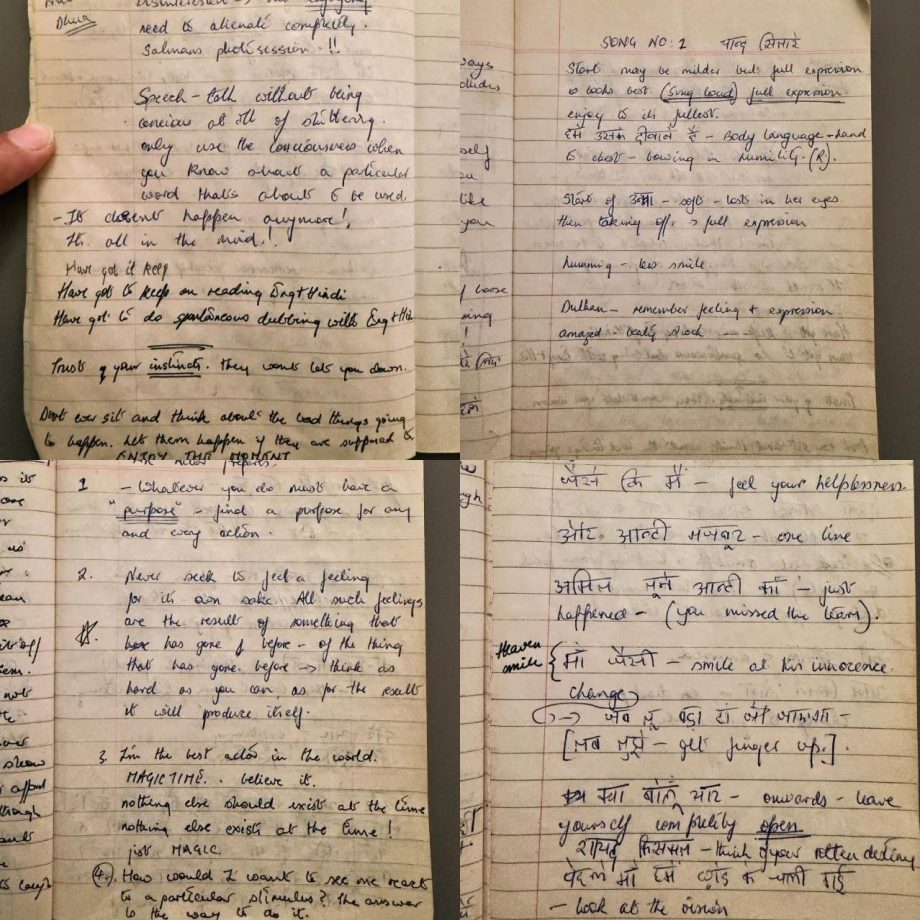 need to alienate completely.
Salmans photosession. !!
Speech - talk without being
concious at all of stuttering.
only use the conciousness when
you know about a particular
word that's about to be used.
- It doesent happen anymore!
Its all in the mind.!
Have got it keep
Have got to keep on reading Eng + Hindi
Have got to do spontaneous dubbing with Eng + Hin
Trust your instincts. they wont let you down.
Dont ever sit and think about the bad things going
to happen. Let them happen if they are supposed to
ENJOY THE MOMENT
SONG NO: 1 चाँद सितारे
Start may be milder but full expression
is looks best. (sing loud) full expression
enjoy to its fullest.
हम उसके दीवाने हैं - Body language - hand
to chest - bowing in humility. (R).
Start of - soft - lost in her eyes
then taking off. full expression
humming - less smile.
Dulhan - remember feeling & expression
amazed - beauty struck
1 - Whatever you do must have a
"purpose" - find a purpose for any
and every action.
2. Never seek to feel a feeling
for its own sake. All such feelings
are the result of something that
has gone before - of the thing
that has gone before -> think as
hard as you can, as for the result
it will produce itself.
3. I'm the best actor in the world.
MAGIC TIME. believe it.
nothing else should exist at the time
nothing else exists at the time!
just MAGIC.
(4.) How would I want to see me react
to a particular stimulus? The answer
is the way to do it.
जैसे कि मैं - feel your helplessness
और आन्टी मजबूर - one line
आन्टी को - just
happened - (you missed the team).
Heaven
smile { माँ जैसी - smile at his innocence.
change
-> जब तू बड़ा हो
[तब तुझे - get finger up.].
क्या बोलूँ यार - onwards - leave
yourself completely open
शायद किस्मत - think of your rotten destiny
पहले माँ हमें छोड़ के चली गई
- look at the vision